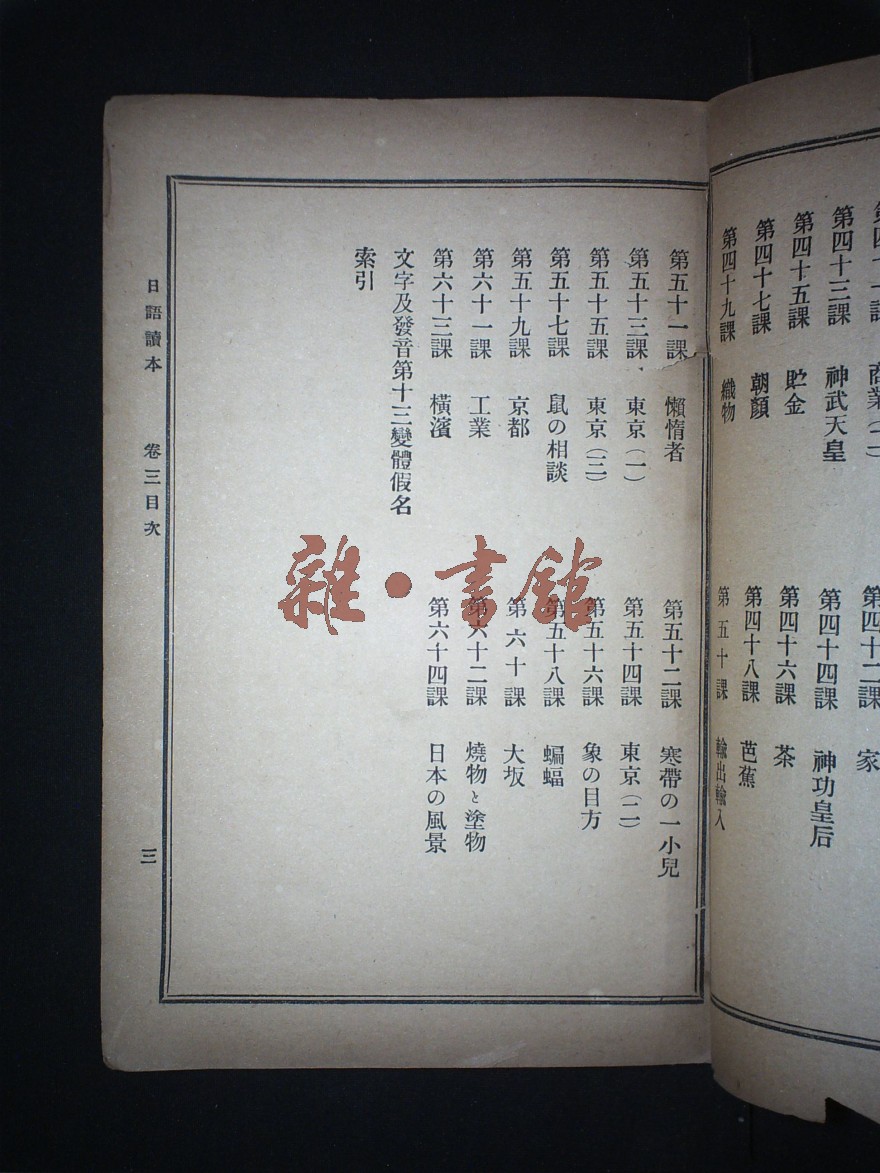 商業(二)
第四十二課 家
第四十三課 神武天皇
第四十四課 神功皇后
第四十五課 貯金
第四十六課 茶
第四十七課 朝顏
第四十八課 芭蕉
第四十九課 織物
第五十課 輸出輸入
第五十一課 懶惰者
第五十二課 寒帶の一小兒
第五十三課 東京(一)
第五十四課 東京(二)
第五十五課 東京(三)
第五十六課 象の目方
第五十七課 鼠の相談
第五十八課 蝙蝠
第五十九課 京都
第六十課 大坂
第六十一課 工業
第六十二課 燒物と塗物
第六十三課 橫濱
第六十四課 日本の風景
文字及發音第十三變體假名
索引
日語讀本 卷三目次 三
雜·書館